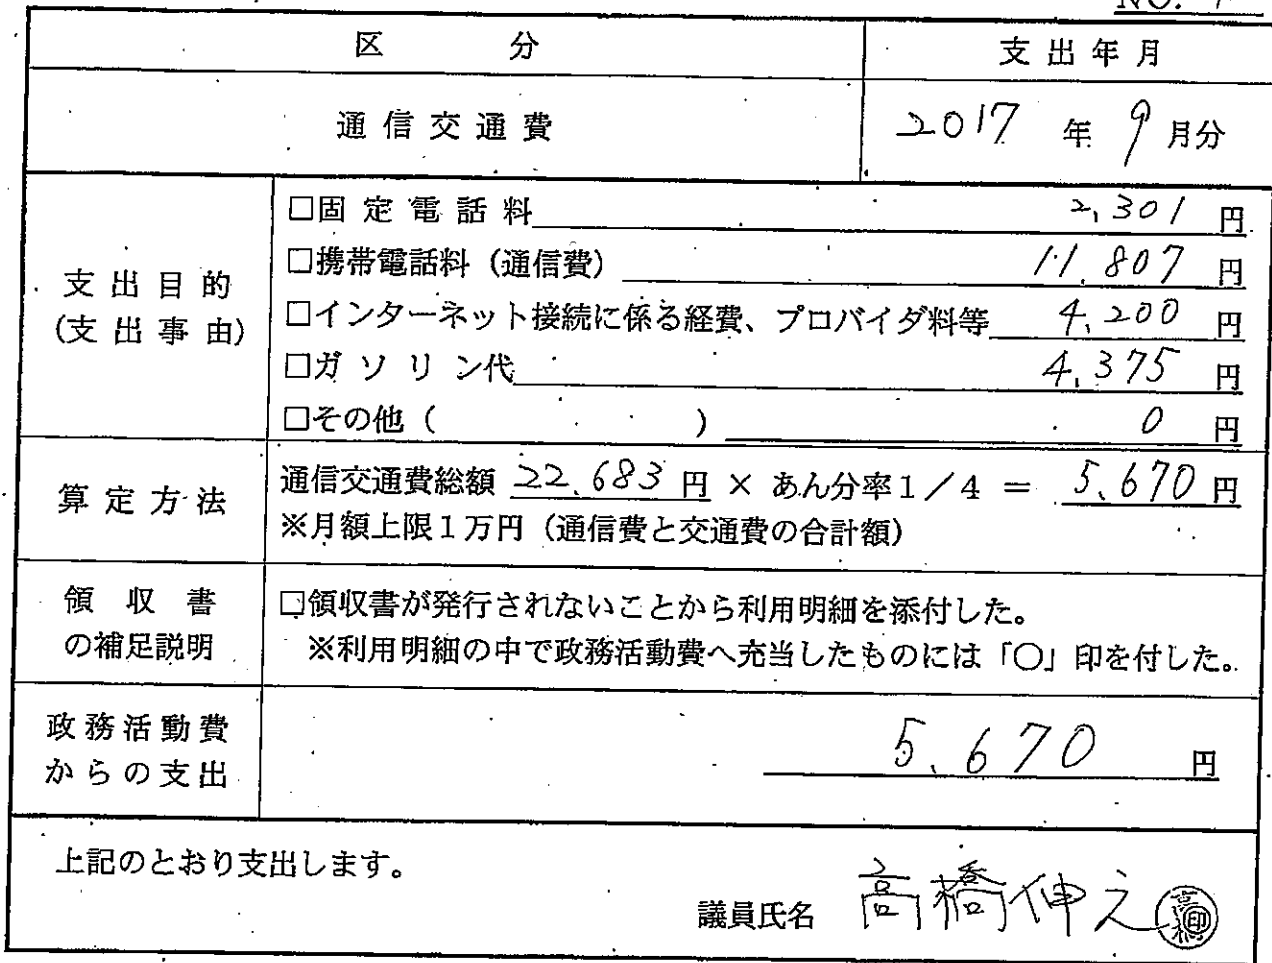 NO.
区 分 支出年月
通信交通費 2017 年 9 月分
支出目的
(支出事由)
□固定電話料 2,301 円
□携帯電話料（通信費） 11,807 円
□インターネット接続に係る経費、プロバイダ料等 4,200 円
□ガソリン代 4,375 円
□その他（ ） 0 円
算定方法
通信交通費総額 22,683 円 × あん分率1／4 ＝ 5,670 円
※月額上限1万円（通信費と交通費の合計額）
領収書
の補足説明
□領収書が発行されないことから利用明細を添付した。
※利用明細の中で政務活動費へ充当したものには「○」印を付した。
政務活動費
からの支出
5,670 円
上記のとおり支出します。
議員氏名 高橋伸之 高橋 印